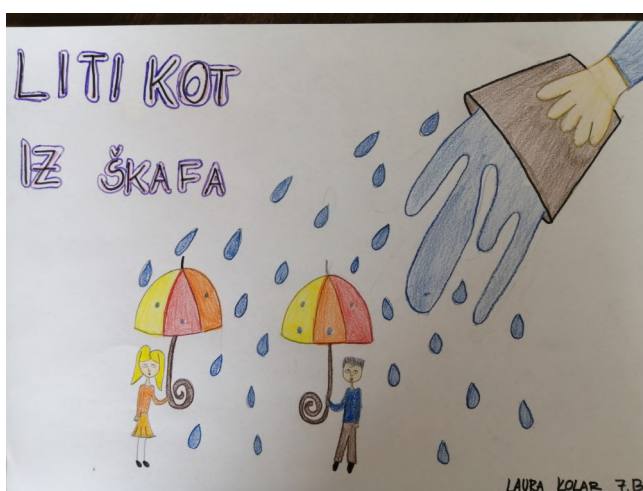 LITI KOT
IZ ŠKAFA
LAURA KOLAR 7.B